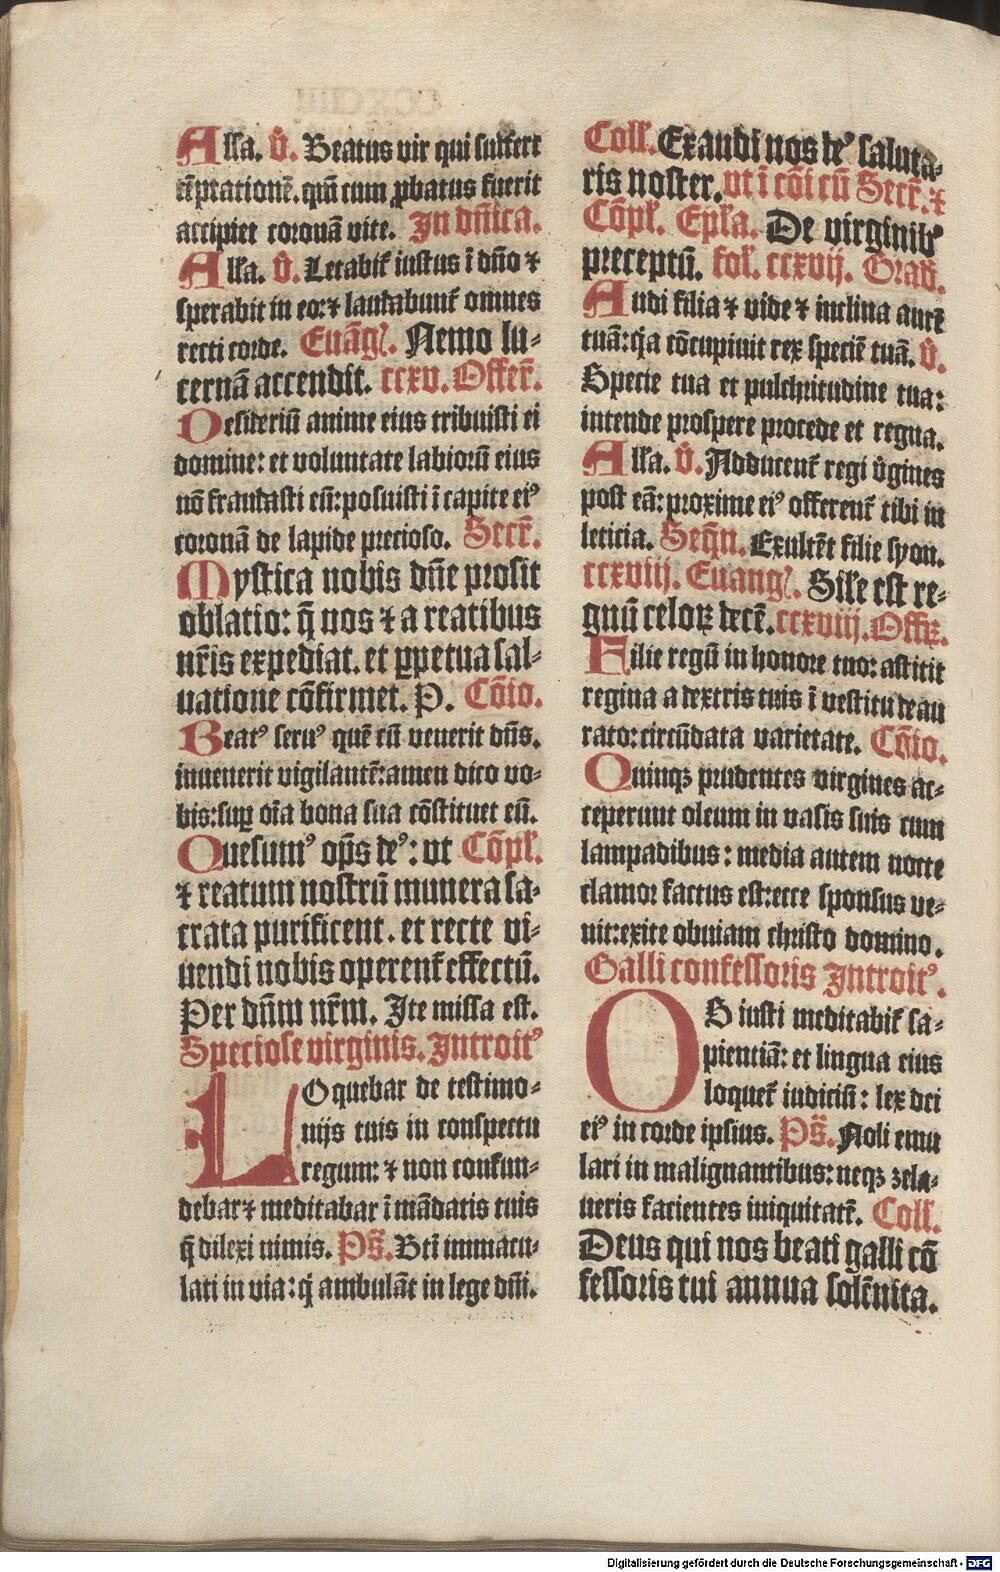 Alla. v̄. Beatus vir qui suffert
tēptationē. qm̄ cum ꝓbatus fuerit
accipiet coronā vite. In dn̄ica.
Alla. v̄. Letabit᷑ iustus ī dn̄o ⁊
sperabit in eo:⁊ laudabunt᷑ omnes
recti corde. Euāgl̄. Nemo lu⸗
cernā accendit. ccxv. Offer̄.
Desideriū anime eius tribuisti ei
domine: et voluntate labiorū eius
nō fraudasti eū: posuisti ī capite eiꝰ
coronā de lapide precioso. Secr̄.
Mystica nobis dn̄e prosit
oblatio: q̄ nos ⁊ a reatibus
nr̄is expediat. et ꝑpetua sal⸗
uatione cōfirmet. P. Cōio.
Beatꝰ seruꝰ quē cū venerit dn̄s.
inuenerit vigilantē: amen dico vo⸗
bis: suꝑ oīa bona sua cōstituet eū.
Quesumꝰ op̄s deꝰ: vt Cōpl̄.
⁊ reatum nostrū munera sa⸗
crata purificent. et recte vi⸗
uendi nobis operent᷑ effectū.
Per dn̄m nr̄m. Ite missa est.
Speciose virginis. Introitꝰ
LOquebar de testimo⸗
nijs tuis in conspectu
regum: ⁊ non confun⸗
debar ⁊ meditabar ī mādatis tuis
q̄ dilexi nimis. Ps̄. Bt̄i immacu⸗
lati in via: q̄ ambulāt in lege dn̄i.
Coll̄. Exaudi nos deꝰ saluta⸗
ris noster. vt ī cōi cū Secr̄. ⁊
Cōpl̄. Epl̄a. De virginibꝰ
preceptū. fol. ccxvij. Grad̄.
Audi filia ⁊ vide ⁊ inclina aurē
tuā: q̄a cōcupiuit rex speciē tuā. v̄.
Specie tua et pulchritudine tua:
intende prospere procede et regna.
Alla. v̄. Adducent᷑ regi v̄gines
post eā: proxime eiꝰ offerent᷑ tibi in
leticia. Seq̄n. Exultēt filie syon.
ccxviij. Euangl̄. Sil̄e est re⸗
gnū celoꝝ decē. ccxviij. Offꝝ.
Filie regū in honore tuo: astitit
regina a dextris tuis ī vestitu deau
rato: circūdata varietate. Cōio.
Quinqꝫ prudentes virgines ac⸗
ceperunt oleum in vasis suis cum
lampadibus: media autem nocte
clamor factus est: ecce sponsus ve⸗
nit: exite obuiam christo domino.
Galli confessoris Introitꝰ.
OS iusti meditabit᷑ sa⸗
pientiā: et lingua eius
loquet᷑ iudiciū: lex dei
eiꝰ in corde ipsius. Ps̄. Noli emu
lari in malignantibus: neqꝫ zela⸗
ueris facientes iniquitatē. Coll̄.
Deus qui nos beati galli cō
fessoris tui annua solēnita.
Digitalisierung gefördert durch die Deutsche Forschungsgemeinschaft - DFG